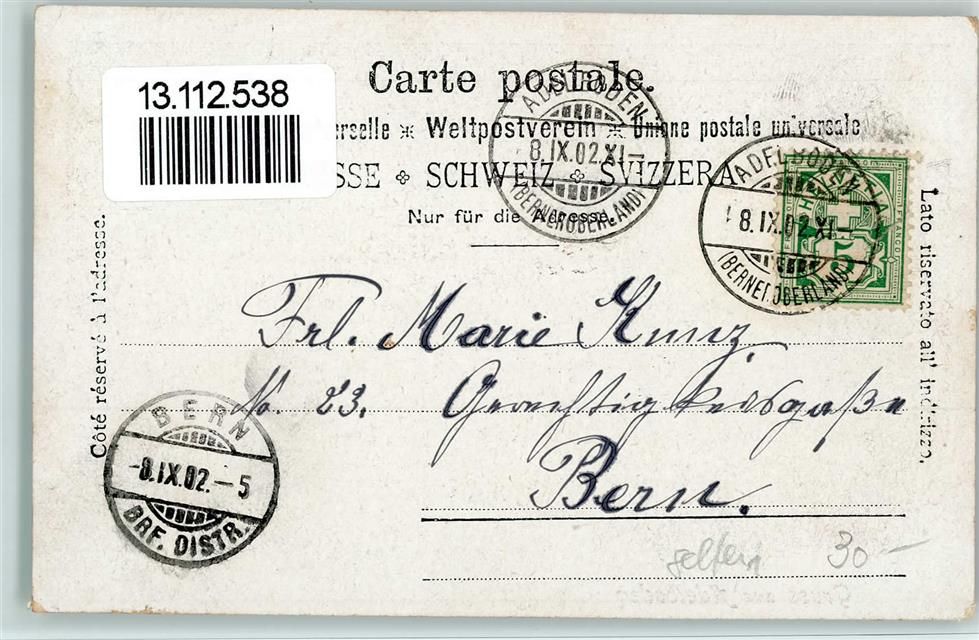 Carte postale.
13.112.538
erselle ※ Weltpostverein ※ Unione postale universale
SSE ✧ SCHWEIZ ✧ SVIZZERA
Nur für die Adresse.
ADELBODEN
8.IX.02.XI–
(BERNEROBERLAND)
ADELBODEN
8.IX.02.XI–
(BERNER OBERLAND)
HELVETIA
FRANCO
5
Côté réservé à l'adresse.
Lato riservato all' indirizzo.
Frl. Marie Kunz
No. 23. Gerechtigkeitsgaße
Bern.
BERN
-8.IX.02.–5
BRF. DISTR.
selten 30 –
Gruss aus Adelboden